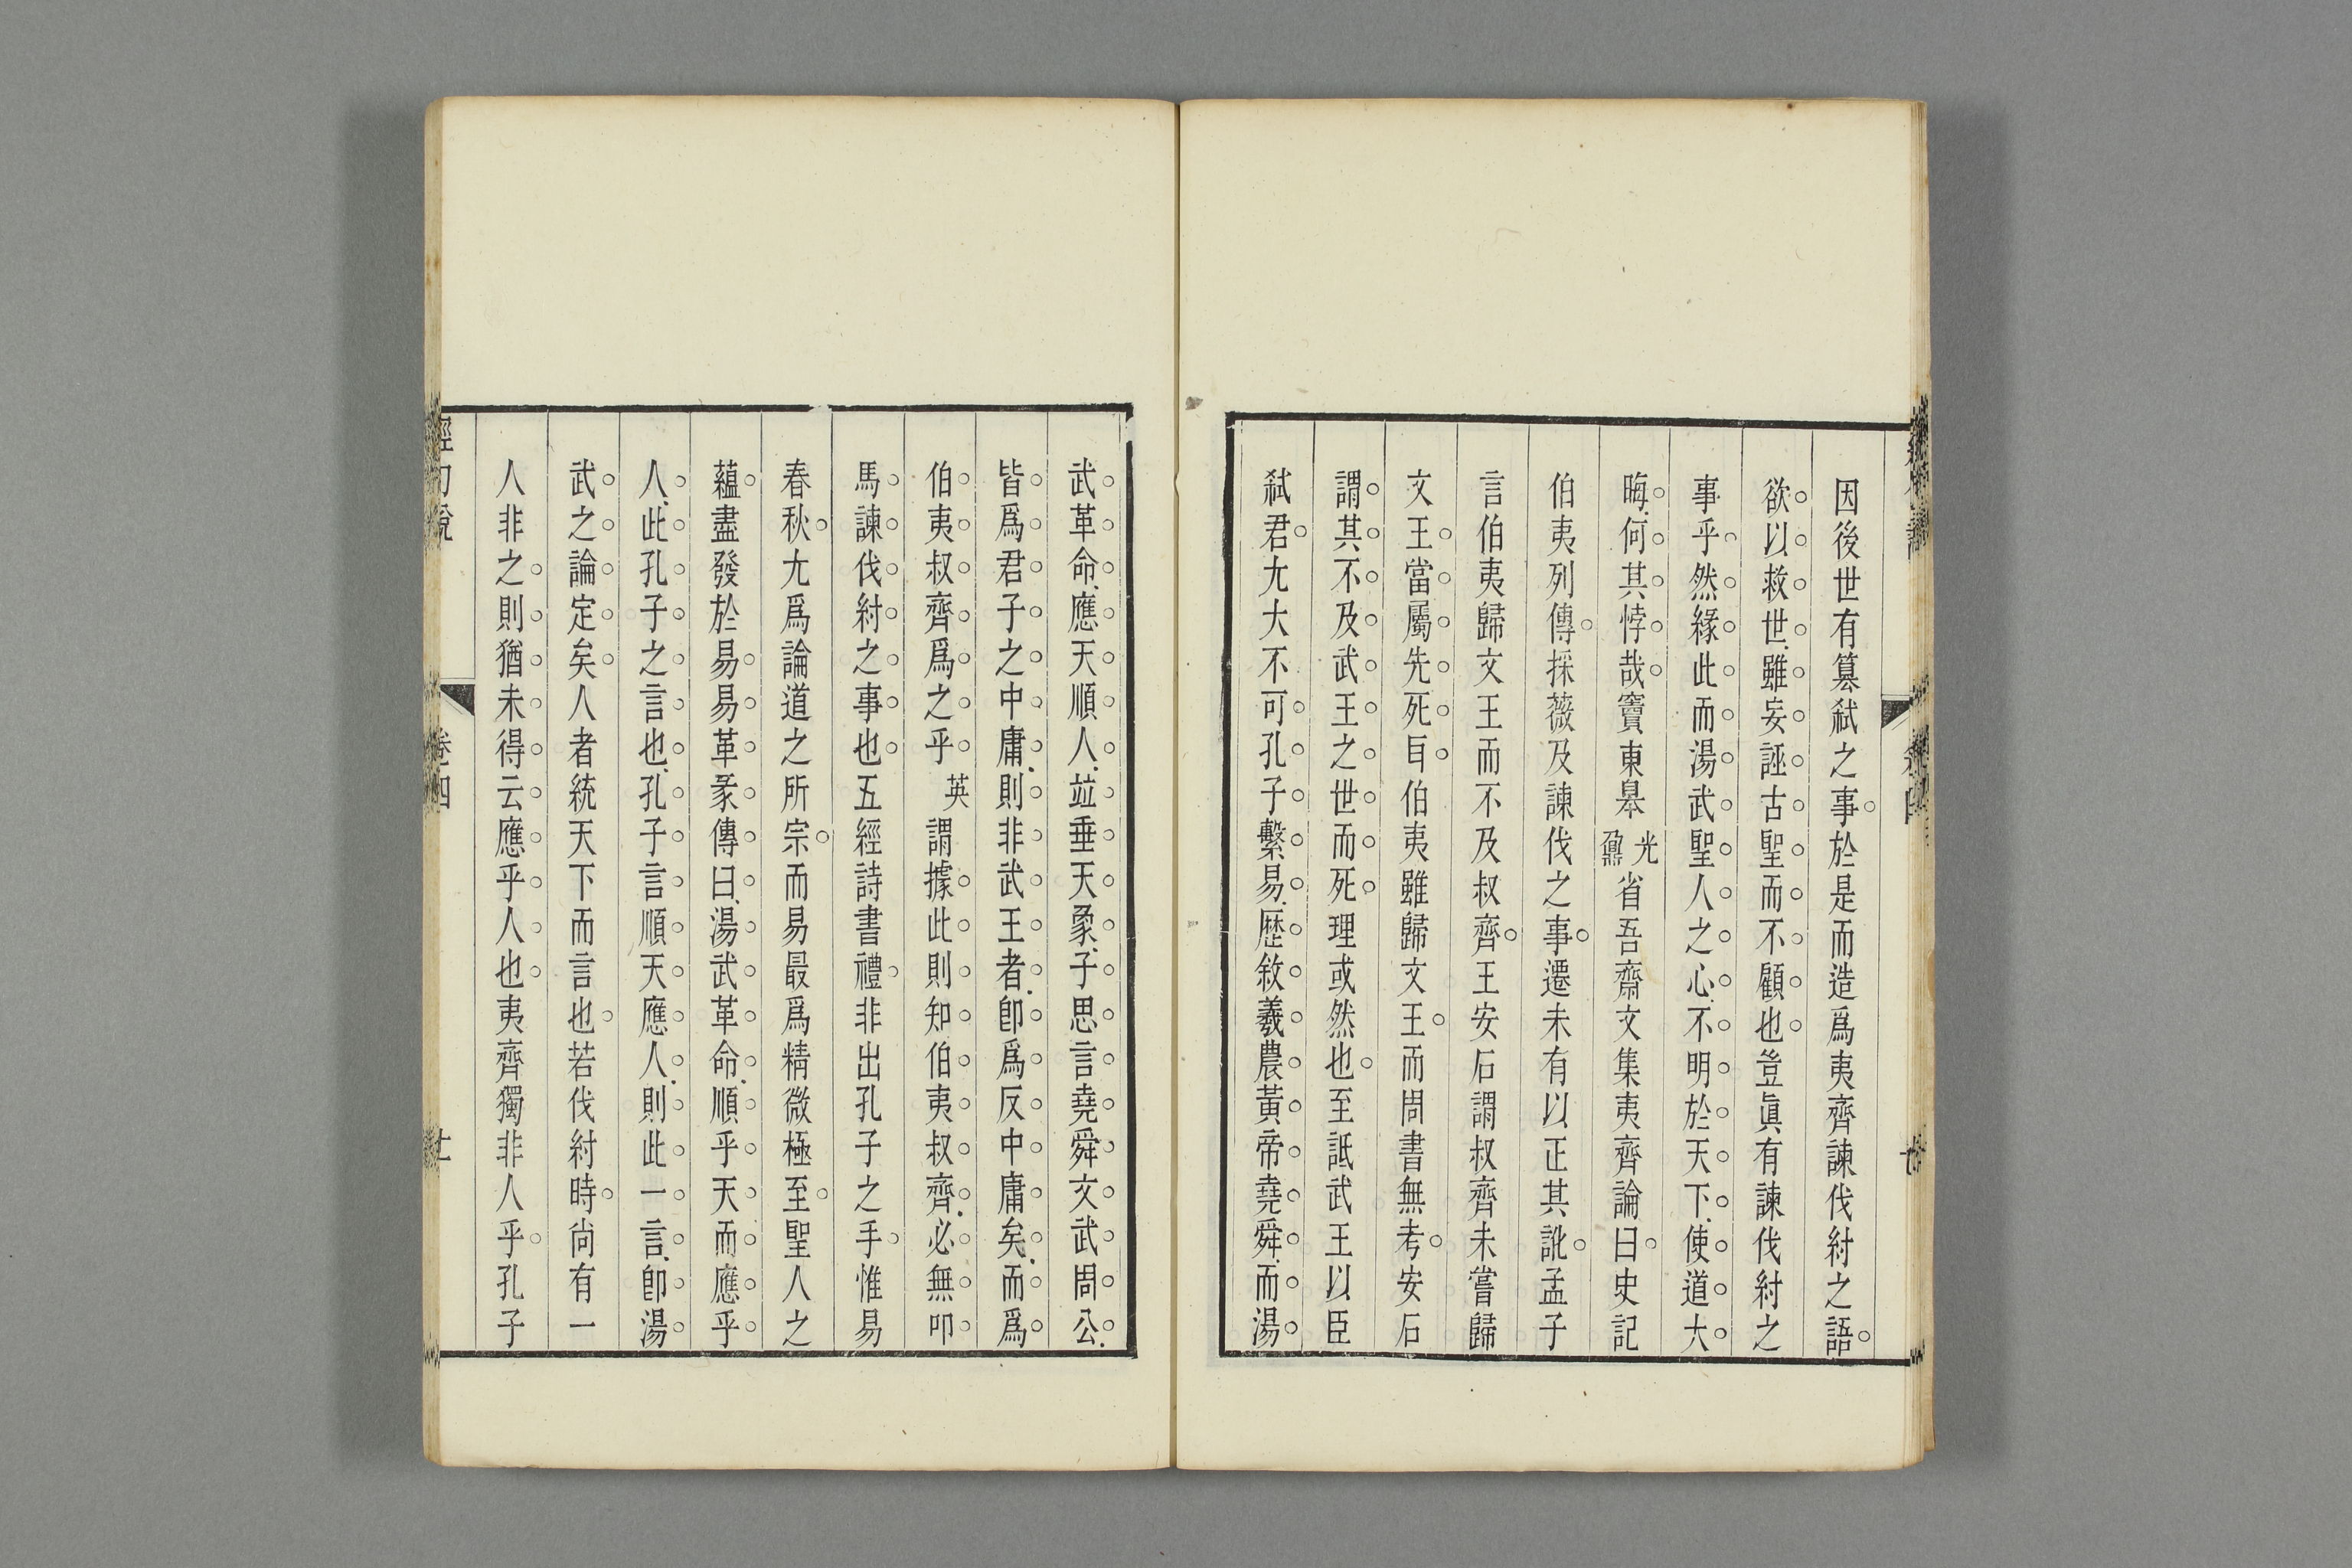 因後世有篡弑之事於是而造爲夷齊諫伐紂之語
欲以救世雖妄誣古聖而不顧也豈眞有諫伐紂之
事乎然緣此而湯武聖人之心不明於天下使道大
晦何其悖哉竇東皐光鼐省吾齋文集夷齊論曰史記
伯夷列傳採薇及諫伐之事遷未有以正其訛孟子
言伯夷歸文王而不及叔齊王安石謂叔齊未嘗歸
文王當屬先死耳伯夷雖歸文王而周書無考安石
謂其不及武王之世而死理或然也至詆武王以臣
弑君尤大不可孔子繫易歷敘羲農黃帝堯舜而湯
武革命應天順人竝垂天彖子思言堯舜文武周公
皆爲君子之中庸則非武王者卽爲反中庸矣而爲
伯夷叔齊爲之乎英謂據此則知伯夷叔齊必無叩
馬諫伐紂之事也五經詩書禮非出孔子之手惟易
春秋尤爲論道之所宗而易最爲精微極至聖人之
蘊盡發於易易革彖傳曰湯武革命順乎天而應乎
人此孔子之言也孔子言順天應人則此一言卽湯
武之論定矣人者統天下而言也若伐紂時尙有一
人非之則猶未得云應乎人也夷齊獨非人乎孔子
卷四